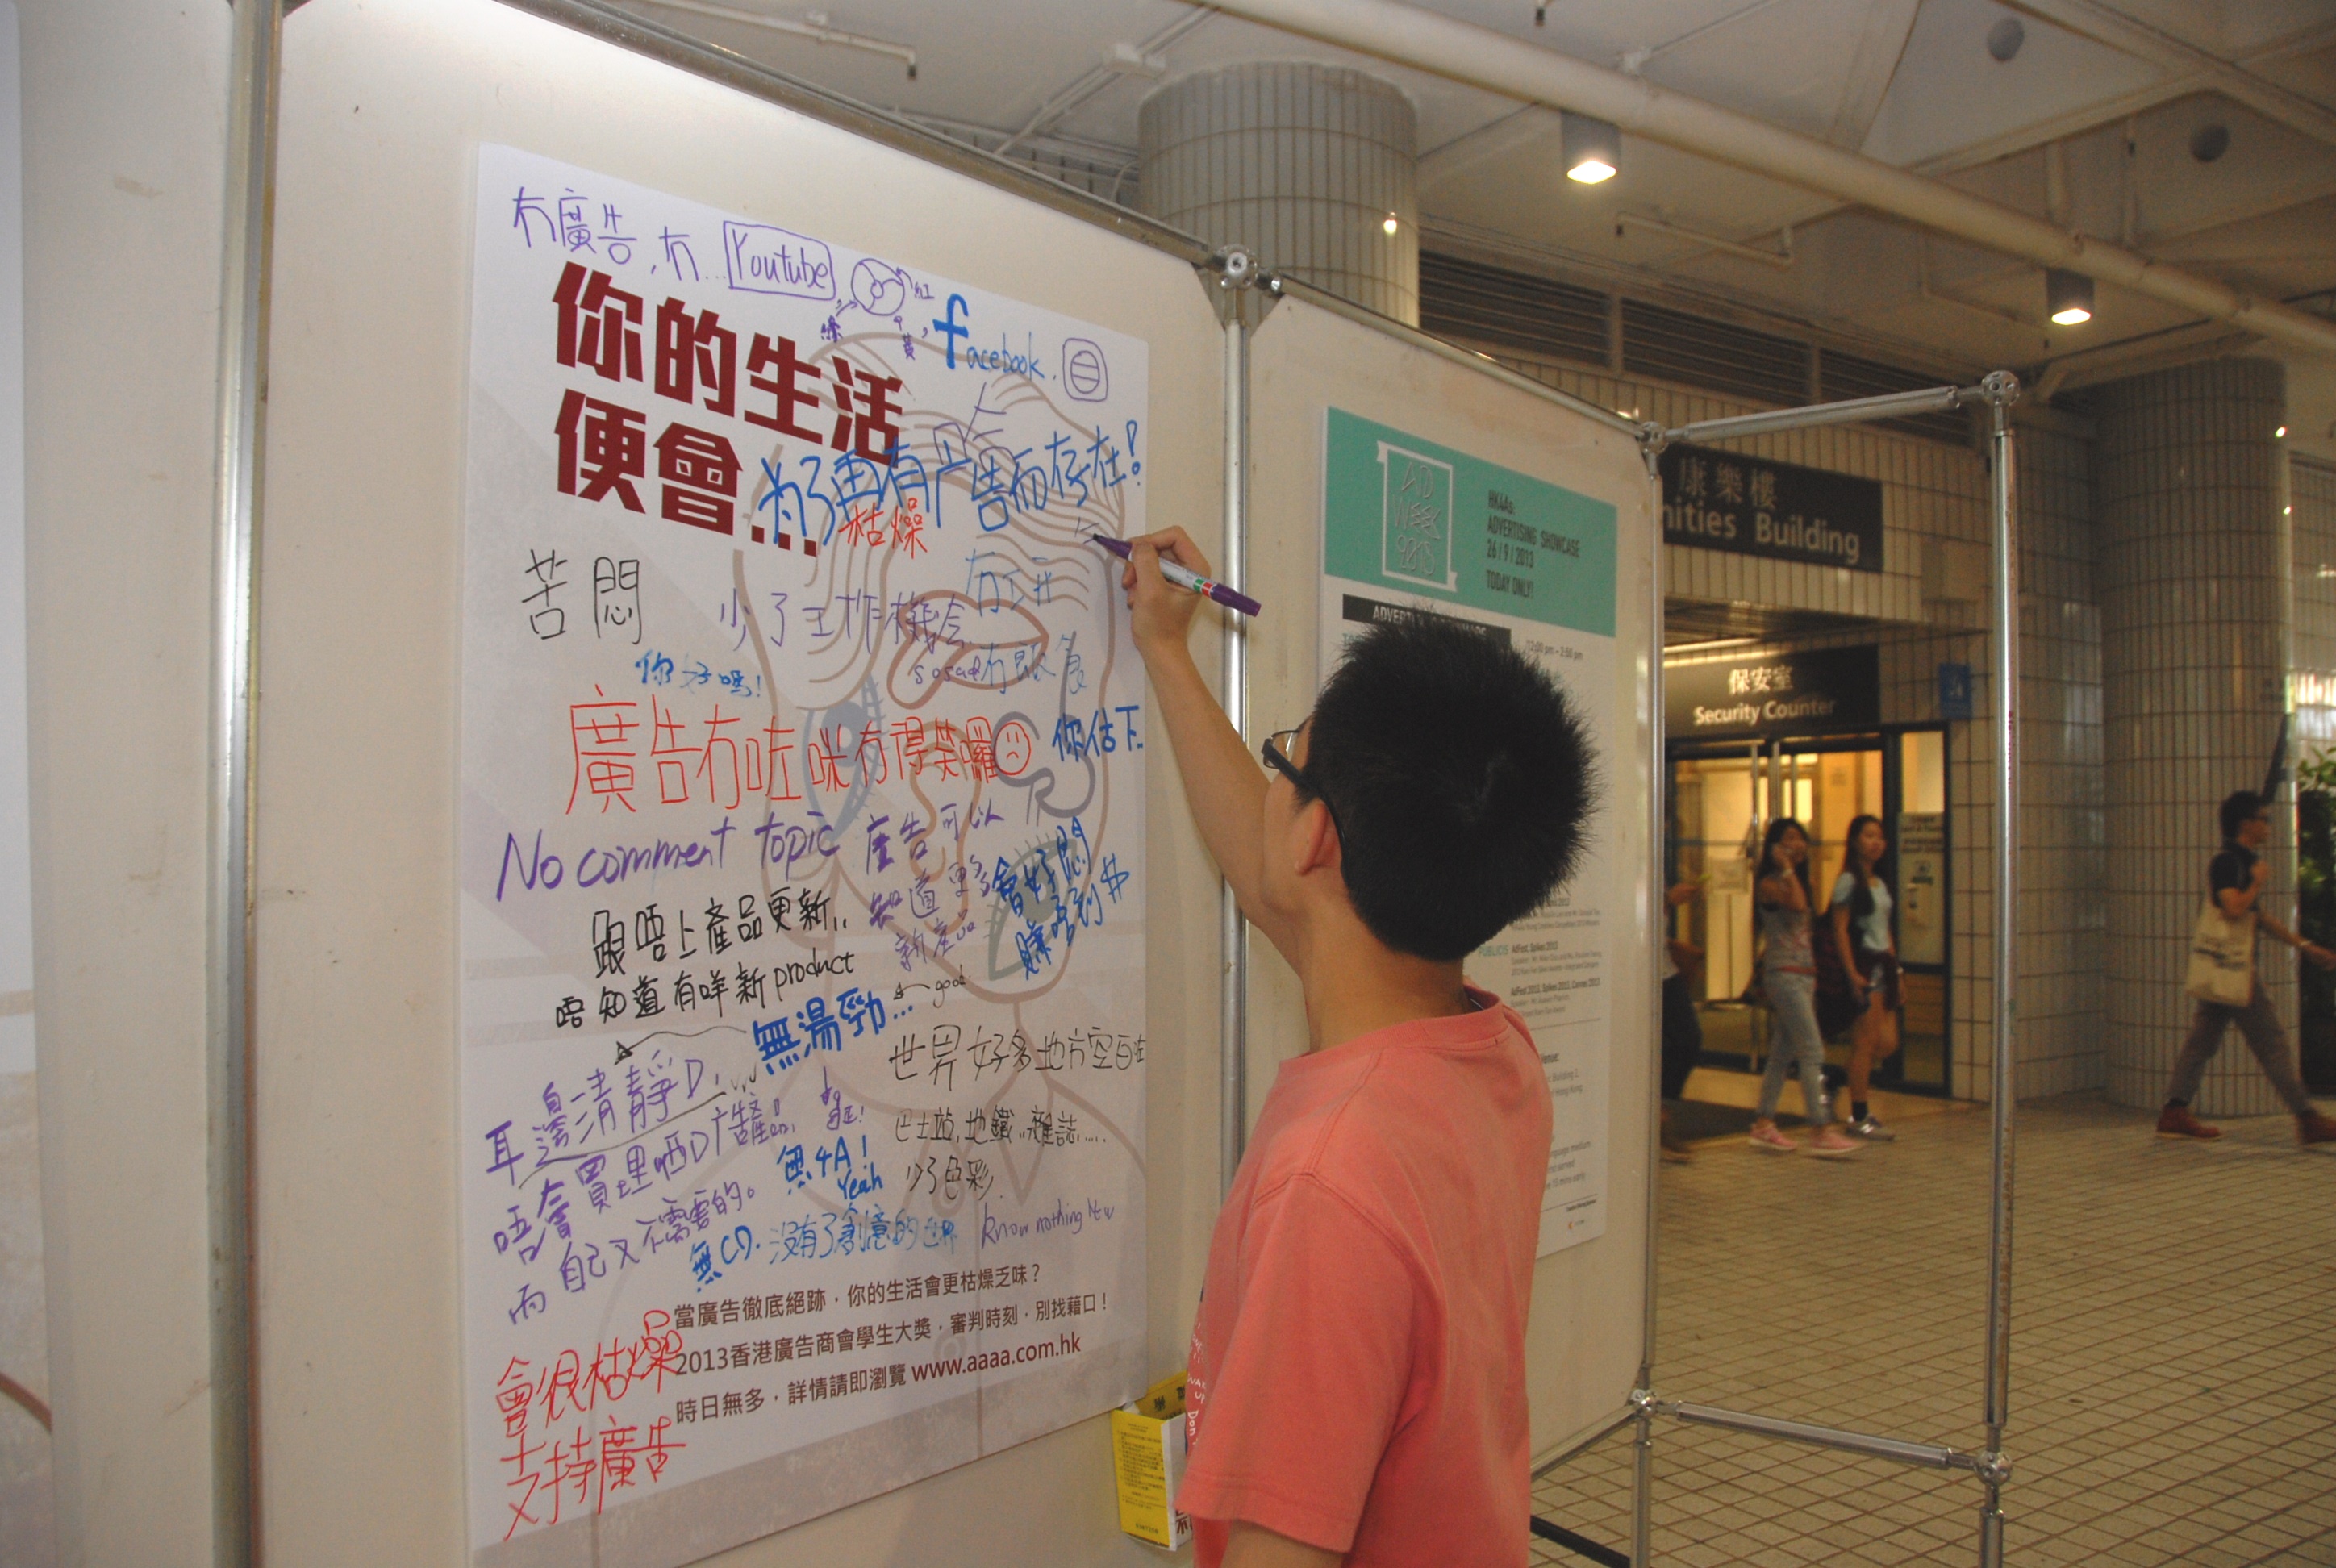 冇廣告，冇...Youtube
紅
黃
facebook.
你的生活
便會...
為了再有广告而存在！
枯燥
苦悶
冇工开
少了工作機会
sosad冇飯食
你好嗎！
廣告冇咗咪冇得笑囉
你估下
No comment topic
產告可以
知道更多
新產品
good
會好悶
賺唔到$
跟唔上產品更新..
唔知道有咩新product
無湯勁...
世界好多地方空白咗
巴士站,地鐵..雜誌....
少了色彩.
耳邊清靜D,
唔會買埋晒D广告品,
而自己又不需要的。
無4A！
Yeah
無CD.沒有了創意的世界
know nothing New
會很枯燥
支持廣告
當廣告徹底絕跡，你的生活會更枯燥乏味？
2013香港廣告商會學生大獎，審判時刻，別找藉口！
時日無多，詳情請即瀏覽 www.aaaa.com.hk
AD
WEEK
2013
HK4As:
ADVERTISING SHOWCASE
26/9/2013
TODAY ONLY!
康樂樓
nities Building
保安室
Security Counter